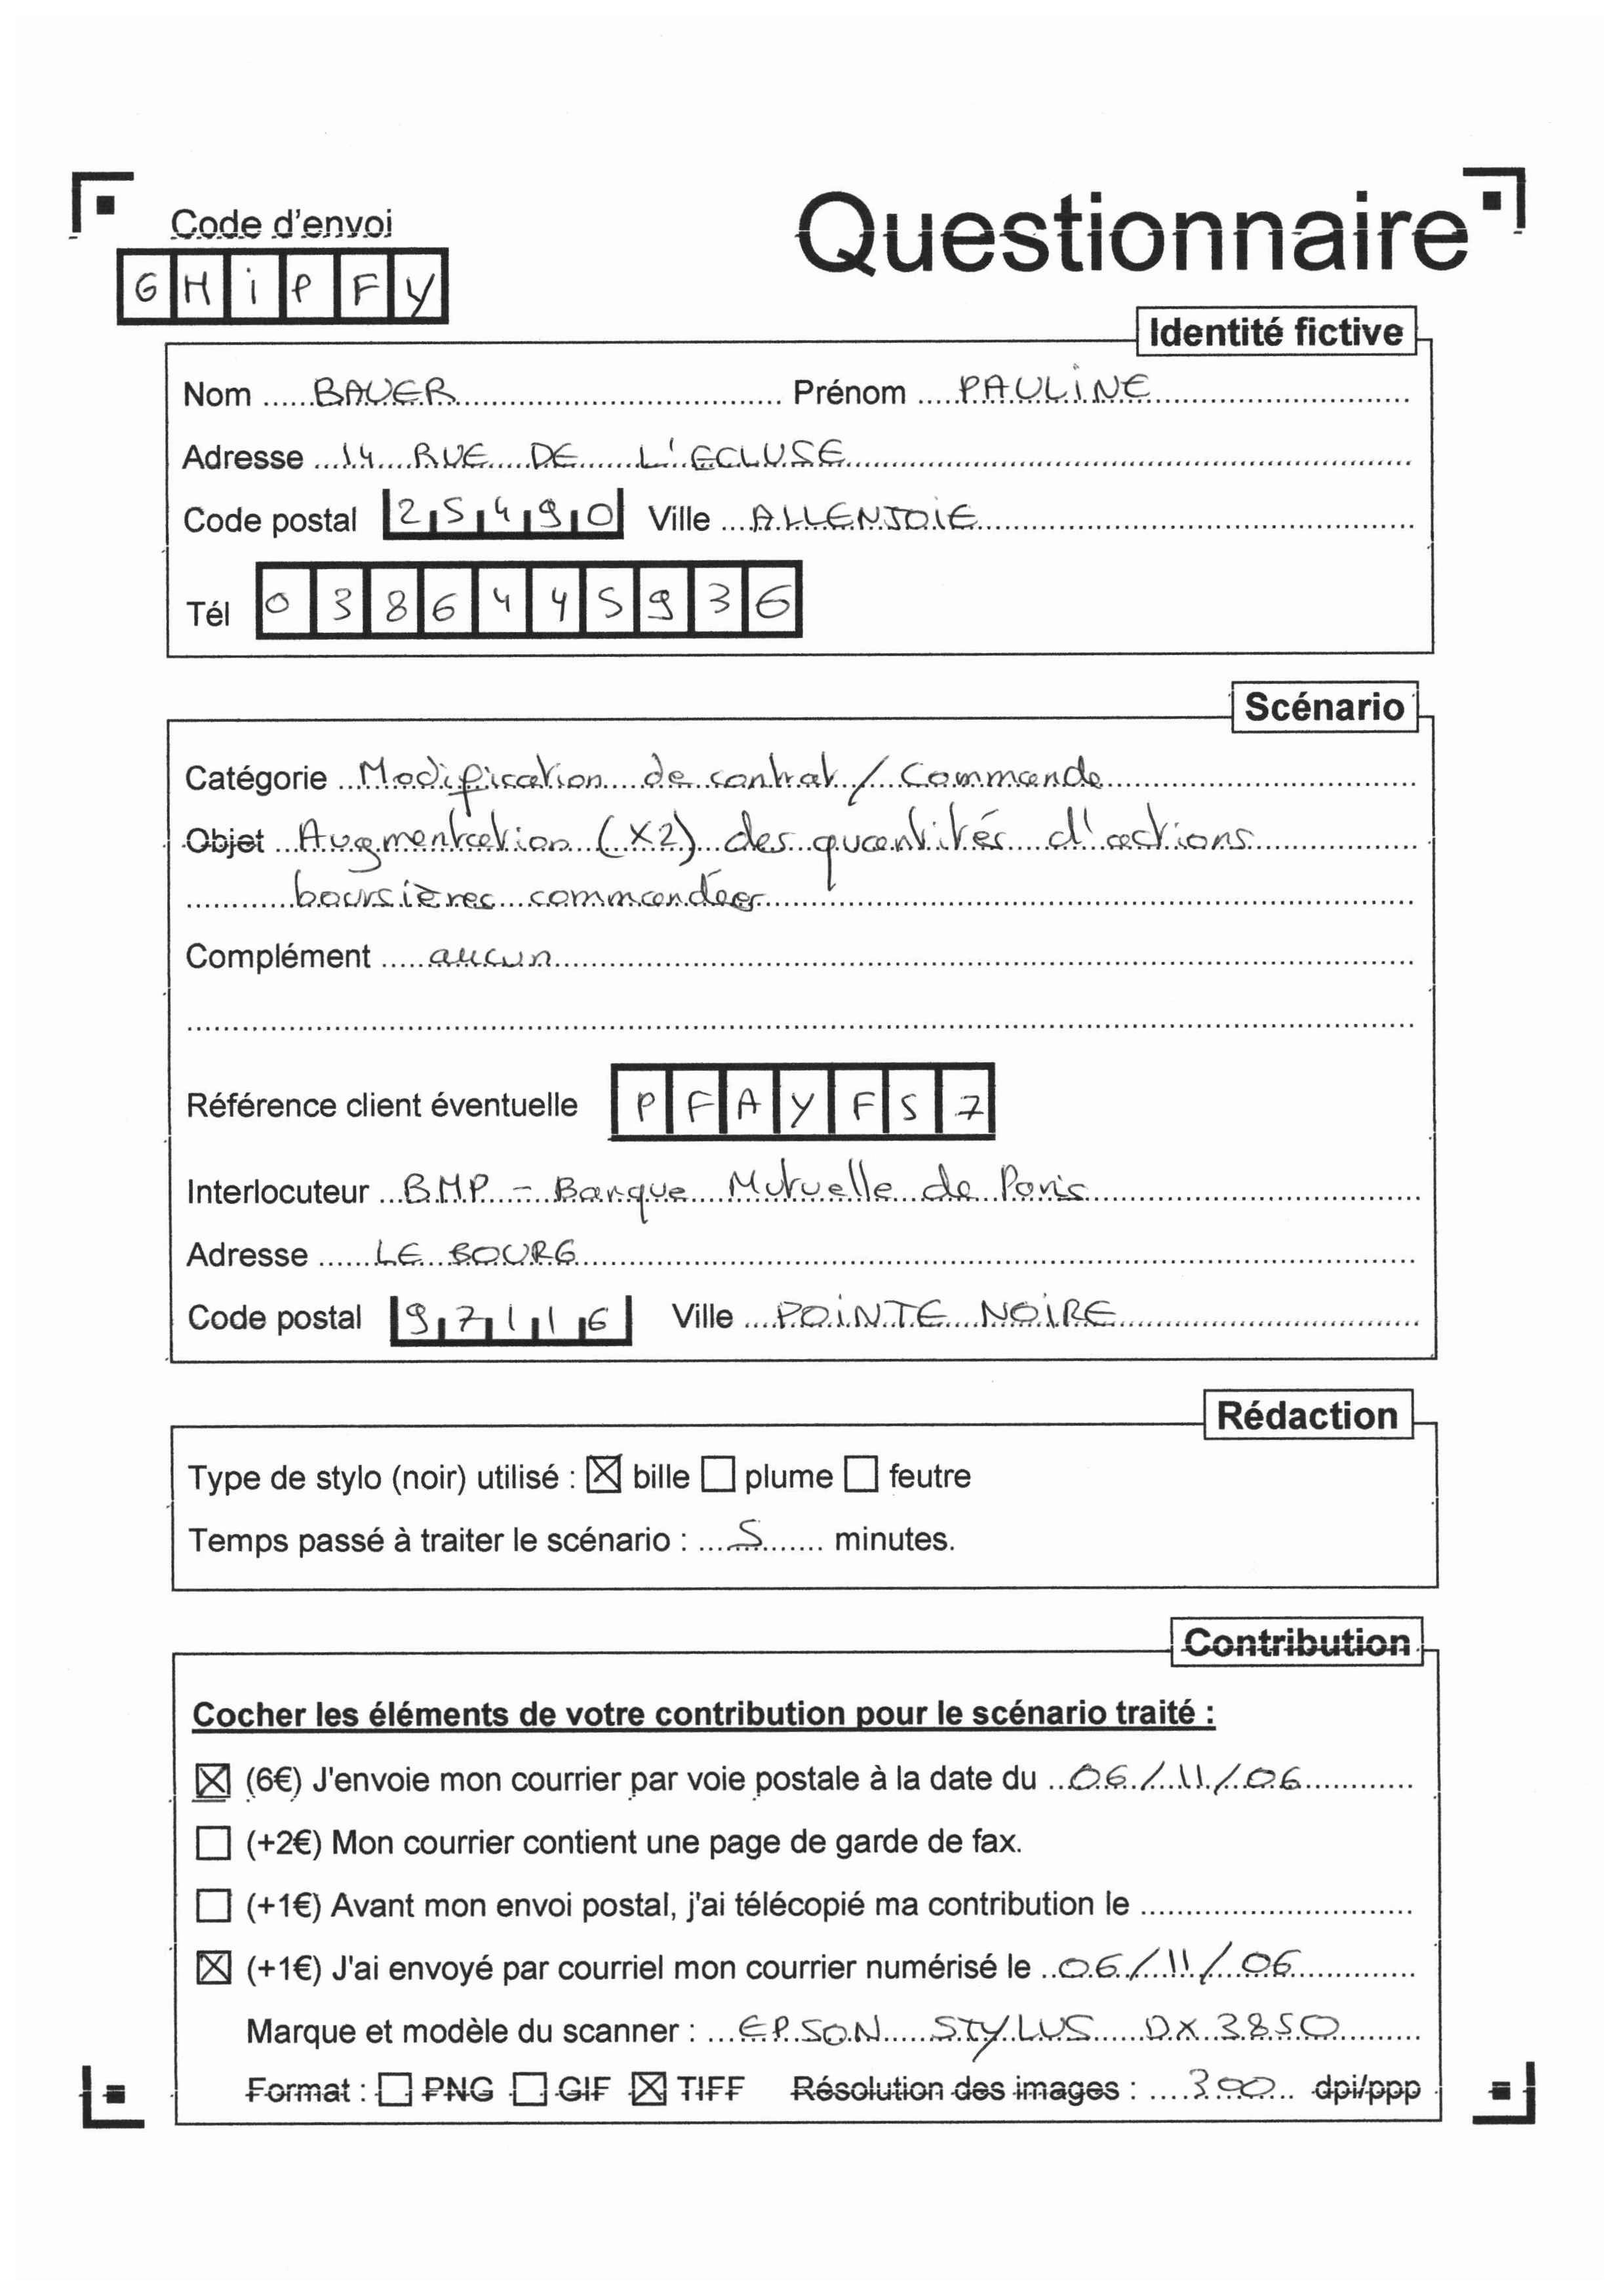 Code d'envoi
Questionnaire
GHiPFY
Identité fictive
Nom BAUER Prénom PAULiNE
Adresse 14 RUE DE L'ECLUSE
Code postal 25490 Ville ALLENJOiE
Tél 0386445936
Scénario
Catégorie Modification de contrat / Commande
Objet Augmentation (x2) des quantités d'actions
boursières commandées
Complément aucun
Référence client éventuelle PFAYFS7
Interlocuteur BMP - Banque Mutuelle de Paris
Adresse LE BOURG
Code postal 97116 Ville POiNTE NOiRE
Rédaction
Type de stylo (noir) utilisé : ☒ bille ☐ plume ☐ feutre
Temps passé à traiter le scénario : 5 minutes.
Contribution
Cocher les éléments de votre contribution pour le scénario traité :
☒ (6€) J'envoie mon courrier par voie postale à la date du 06/11/06
☐ (+2€) Mon courrier contient une page de garde de fax.
☐ (+1€) Avant mon envoi postal, j'ai télécopié ma contribution le
☒ (+1€) J'ai envoyé par courriel mon courrier numérisé le 06/11/06
Marque et modèle du scanner : EPSON STYLUS DX3850
Format : ☐ PNG ☐ GIF ☒ TIFF Résolution des images : 300 dpi/ppp